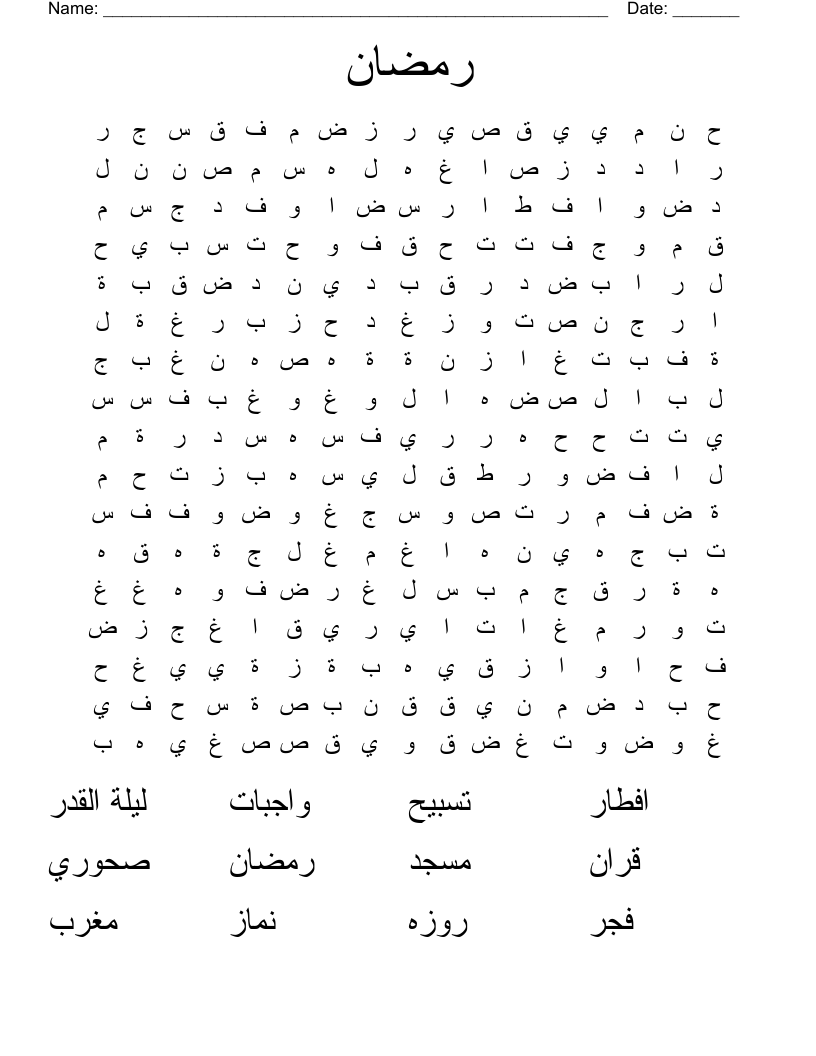 Name: ____________________ Date: ________
رمضان
ح ن م ي ي ق ص ي ر ز ض م ف ق س ج ر
ر ا د د ز ص ا غ ه ل ه س م ص ن ن ل
د ض و ا ف ط ا ر س ض ا و ف د ج س م
ق م و ج ف ت ت ح ق ف و ح ت س ب ي ح
ل ر ا ب ض د ر ق ب د ي ن د ض ق ب ة
ا ر ج ن ص ت و ز غ د ح ز ب ر غ ة ل
ة ف ب ت غ ا ز ن ة ة ه ص ه ن غ ب ج
ل ب ا ل ص ض ه ا ل و غ و غ ب ف س س
ي ت ت ح ح ه ر ر ي ف س ه س د ر ة م
ل ا ف ض و ر ط ق ل ي س ه ب ز ت ح م
ة ض ف م ر ت ص و س ج غ و ض و ف ف س
ت ب ج ه ي ن ه ا غ م غ ل ج ة ه ق ه
ه ة ر ق ج م ب س ل غ ر ض ف و ه غ غ
ت و ر م غ ا ت ا ي ر ي ق ا غ ج ز ض
ف ح ا و ا ز ق ي ه ب ة ز ة ي ي غ ح
ح ب د ض م ن ي ق ق ن ب ص ة س ح ف ي
غ و ض و ت غ ض ق و ي ق ص ص غ ي ه ب
افطار تسبيح واجبات ليلة القدر
قران مسجد رمضان صحوري
فجر روزه نماز مغرب